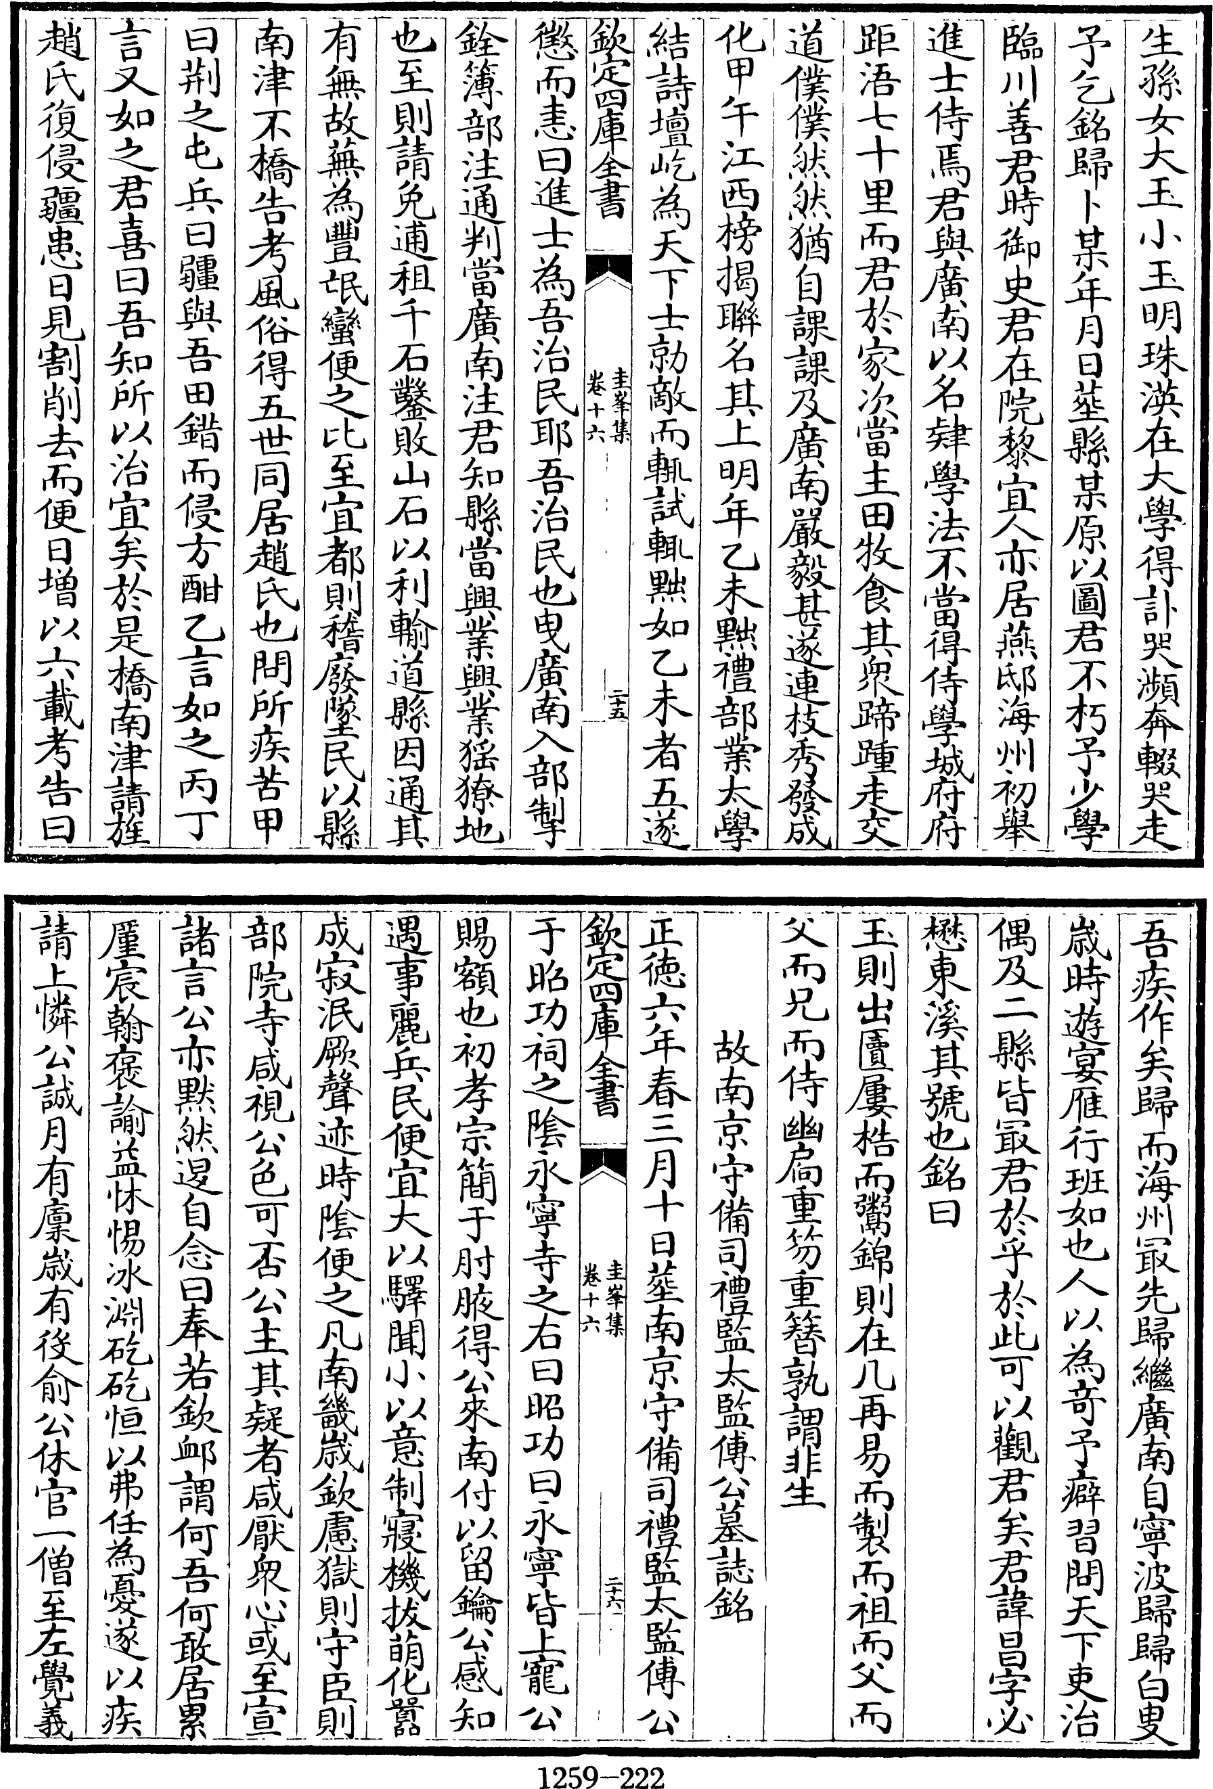 生孫女大玉小玉明珠漢在大學得訃哭瀕奔輟哭走
予乞銘歸卜某年月日塟縣某原以圖君不朽予少學
臨川善君時御史君在院黎宜人亦居燕邸海州初舉
進士侍焉君與廣南以名肄學法不當得侍學城府府
距浯七十里而君於家次當主田牧食其衆蹄踵走交
道僕僕然然猶自課課及廣南嚴毅甚遂連枝秀發成
化甲午江西榜揭聯名其上明年乙未黜禮部業太學
結詩壇屹為天下士勍敵而輒試輒黜如乙未者五遂
欽定四庫全書
圭峯集
卷十六
二十五
懲而恚曰進士為吾治民耶吾治民也曳廣南入部掣
銓簿部注通判當廣南注君知縣當興業興業猺獠地
也至則請免逋租千石鑿敗山石以利輸道縣因通其
有無故蕪為豐氓蠻便之比至宜都則稽廢墜民以縣
南津不橋告考風俗得五世同居趙氏也問所疾苦甲
曰荆之屯兵曰疆與吾田錯而侵方酣乙言如之丙丁
言又如之君喜曰吾知所以治宜矣於是橋南津請旌
趙氏復侵疆患日見割削去而便日增以六載考告曰
吾疾作矣歸而海州冣先歸繼廣南自寧波歸歸白叟
歳時遊宴雁行班如也人以為竒予癖習問天下吏治
偶及二縣皆冣君於乎於此可以觀君矣君諱昌字必
懋東溪其號也銘曰
玉則出匵屢梏而鬻錦則在几再易而製而祖而父而
父而兄而侍幽扃重笏重簪孰謂非生
故南京守備司禮監太監傅公墓誌銘
正徳六年春三月十日塟南京守備司禮監太監傅公
欽定四庫全書
圭峯集
卷十六
二十六
于昭功祠之隂永寧寺之右曰昭功曰永寧皆上寵公
賜額也初孝宗簡于肘腋得公來南付以留鑰公感知
遇事麗兵民便宜大以驛聞小以意制寢機拔萌化嚚
成寂泯厥聲迹時隂便之凡南畿歳欽慮獄則守臣則
部院寺咸視公色可否公主其疑者咸厭衆心或至宣
諸言公亦默然退自念曰奉若欽䘏謂何吾何敢居累
厪宸翰褒諭益怵惕冰淵矻矻恒以弗任為憂遂以疾
請上憐公誠月有廩歳有後俞公休官一僧至左覺義
1259-222